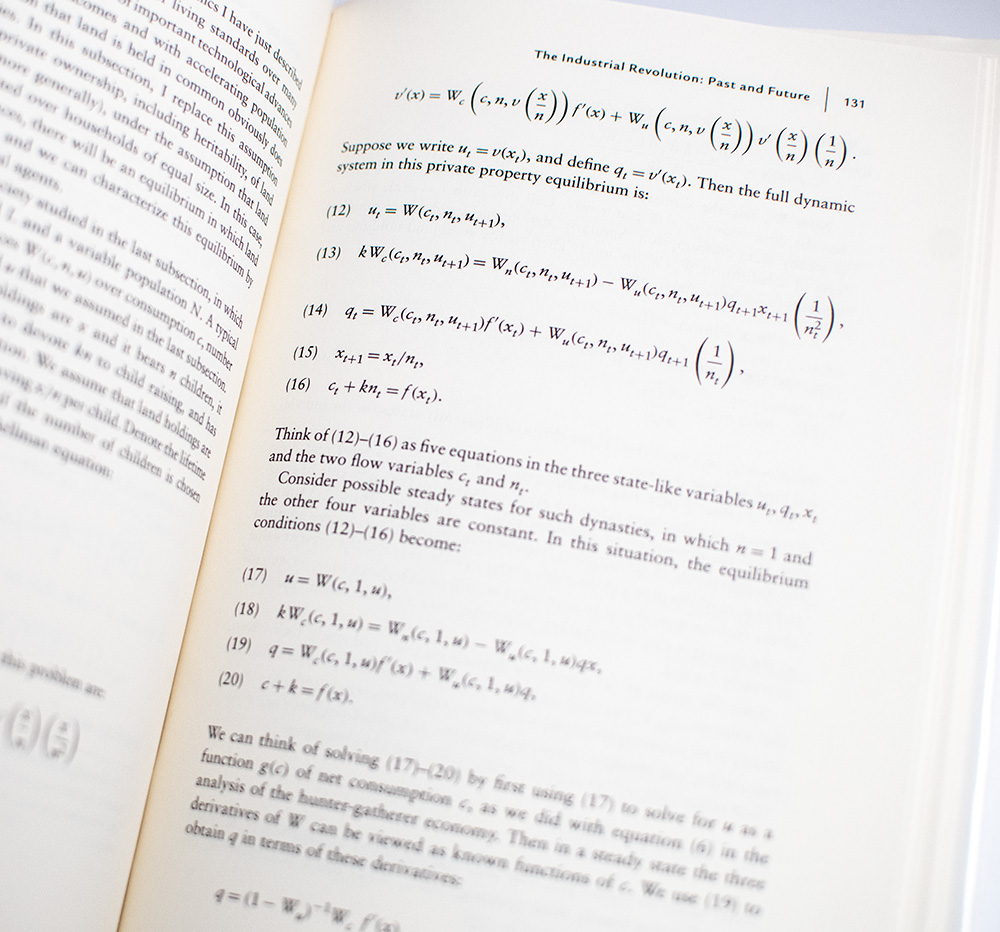 ics I have just described
living standards over many
of important technological advances
comes and with accelerating population
on that land is held in common obviously does
es. In this subsection, I replace this assumption
private ownership, including heritability, of land
more generally), under the assumption that land
ted over households of equal size. In this case,
ces, there will be an equilibrium in which land
and we can characterize this equilibrium by
al agents.
ciety studied in the last subsection, in which
l, and a variable population N. A typical
ces W(c, n, u) over consumption c, number
u that we assumed in the last subsection.
oldings are x and it bears n children, it
to devote kn to child raising, and has
tion. We assume that land holdings are
ving x/n per child. Denote the lifetime
if the number of children is chosen
ellman equation:
this problem are
The Industrial Revolution: Past and Future | 131
v′(x) = W_c (c, n, v (x/n)) f′(x) + W_u (c, n, v (x/n)) v′ (x/n) (1/n).
Suppose we write u_t = v(x_t), and define q_t = v′(x_t). Then the full dynamic
system in this private property equilibrium is:
(12) u_t = W(c_t, n_t, u_{t+1}),
(13) kW_c(c_t, n_t, u_{t+1}) = W_n(c_t, n_t, u_{t+1}) − W_u(c_t, n_t, u_{t+1})q_{t+1}x_{t+1} (1/n_t^2),
(14) q_t = W_c(c_t, n_t, u_{t+1})f′(x_t) + W_u(c_t, n_t, u_{t+1})q_{t+1} (1/n_t),
(15) x_{t+1} = x_t/n_t,
(16) c_t + kn_t = f(x_t).
Think of (12)–(16) as five equations in the three state-like variables u_t, q_t, x_t
and the two flow variables c_t and n_t.
Consider possible steady states for such dynasties, in which n = 1 and
the other four variables are constant. In this situation, the equilibrium
conditions (12)–(16) become:
(17) u = W(c, 1, u),
(18) kW_c(c, 1, u) = W_n(c, 1, u) − W_u(c, 1, u)qx,
(19) q = W_c(c, 1, u)f′(x) + W_u(c, 1, u)q,
(20) c + k = f(x).
We can think of solving (17)–(20) by first using (17) to solve for u as a
function g(c) of net consumption c, as we did with equation (6) in the
analysis of the hunter-gatherer economy. Then in a steady state the three
derivatives of W can be viewed as known functions of c. We use (19) to
obtain q in terms of these derivatives:
q = (1 − W_u)^{−1}W_c f′(x)